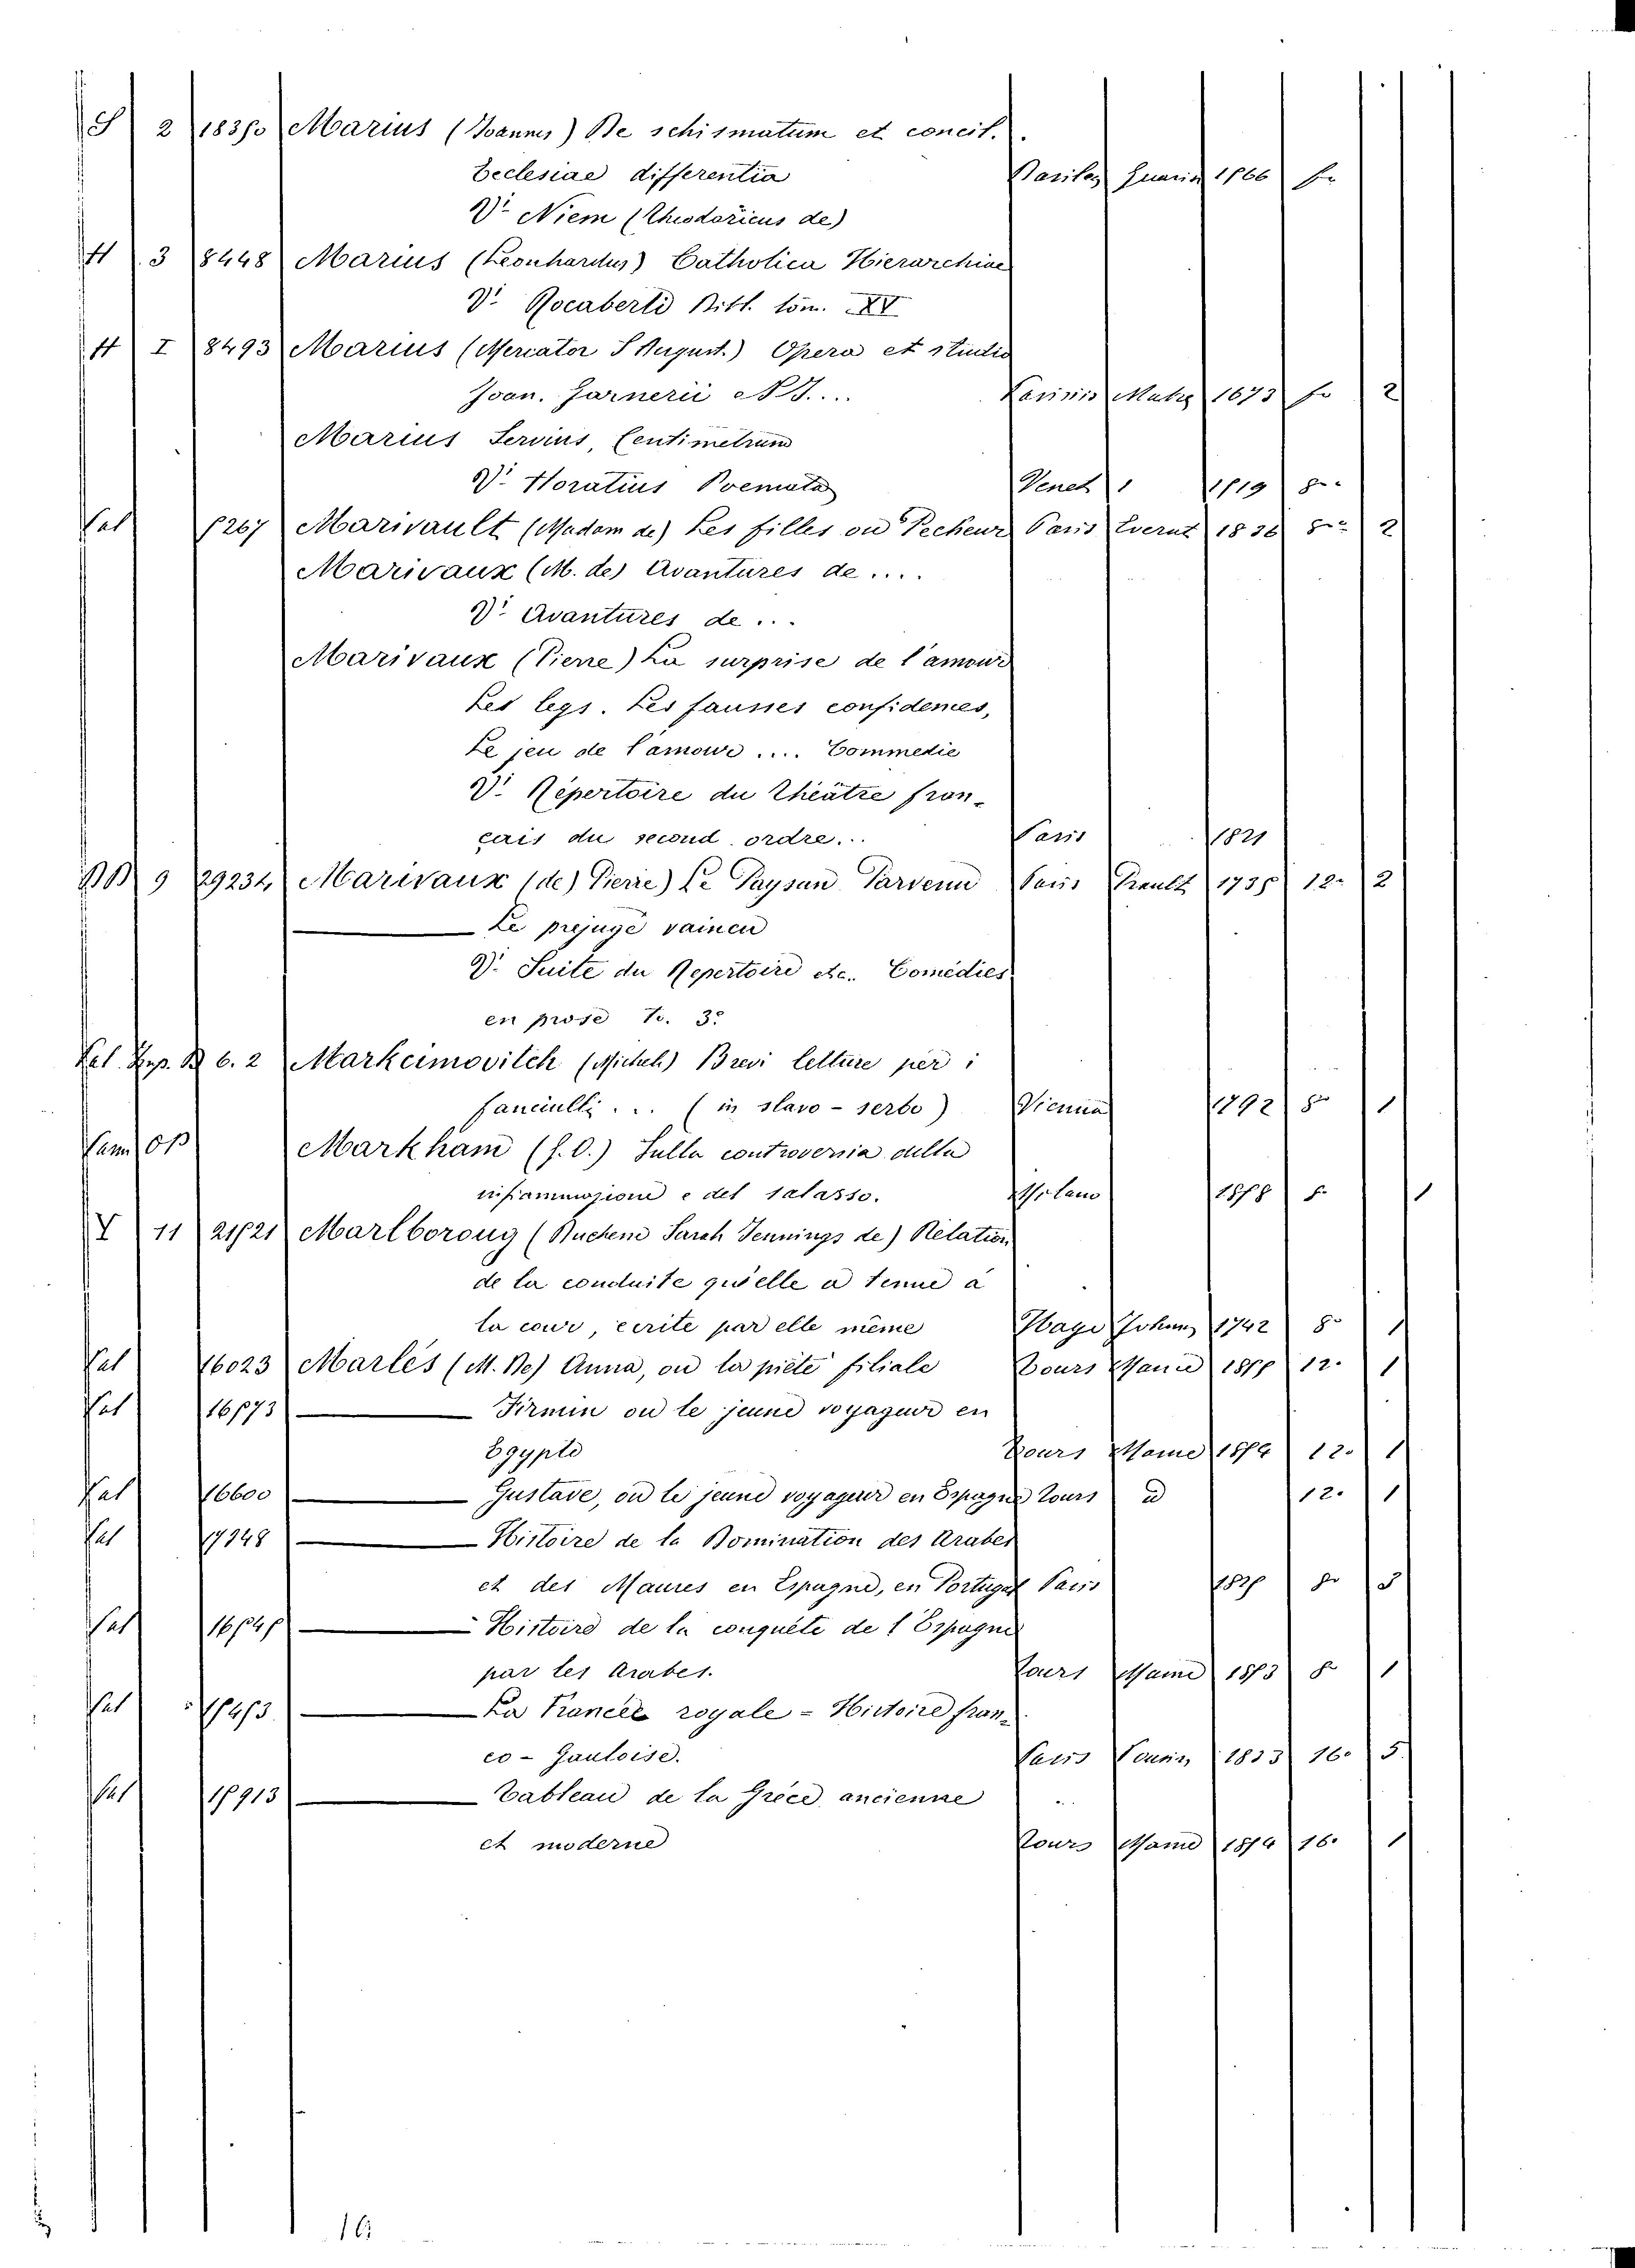 S 2 18350 Marius (Joannes) De schismatum et concil.
Ecclesiae differentia Basileae 1566 fo
V. Niem (Theodoricus de)
H 3 8448 Marius (Leonhardus) Catholica Hierarchiae
V. Rocaberti Bibl. tom. XV
H I 8493 Marius (Mercator S August.) Opera et studio
Joan. Garnerii Parisiis 1673 fo 2
Marius Servius, Centimetrum
V. Horatius Poemata Venet 1519 8o
Sal 5267 Marivault (Madam de) Les filles ou Pecheur Paris Everat 1836 8o 2
Marivaux (M. de) Avantures de ....
V. Avantures de ...
Marivaux (Pierre) La surprise de l'amour
Les legs. Les fausses confidences,
Le jeu de l'amour .... Commedie
V. Répertoire du Théâtre fran-
cais du second ordre... Paris 1821
BB 9 29234 Marivaux (de) Pierre) Le Paysan Parvenu Paris Prault 1735 12o 2
Le prejugé vaincu
V. Suite du Repertoire etc. Comédies
en prose T. 3o
B 6. 2 Markeimovitch (Michele) Brevi letture per i
fanciulli ... (in slavo-serbo) Vienna 1792 8o 1
Markham (f. O.) Sulla controversia della
infiammazione e del salasso. Milano 1
Y 11 21521 Marlboroug (Duchene Sarah Jennings de) Relation
de la conduite qu'elle a tenue à
la cour, ecrite par elle même Haye 1742 8o 1
Sal 16023 Marlès (M. De) Anna, ou la piété filiale Tours Mame 12o 1
Sal 16573 Firmin ou le jeune voyageur en
Egypte Tours Mame 12o 1
Sal 16600 Gustave, ou le jeune voyageur en Espagne Tours id 12o 1
Sal 17348 Histoire de la Domination des Arabes
et des Maures en Espagne, en Portugal Paris 1825 8o 3
Sal 16545 Histoire de la conquête de l'Espagne
par les Arabes. Tours Mame 8o 1
Sal La France royale - Histoire fran-
co - Gauloise. Paris 1833 16o 5
Sal 15913 Tableau de la Grèce ancienne
et moderne Tours Mame 16o 1
16